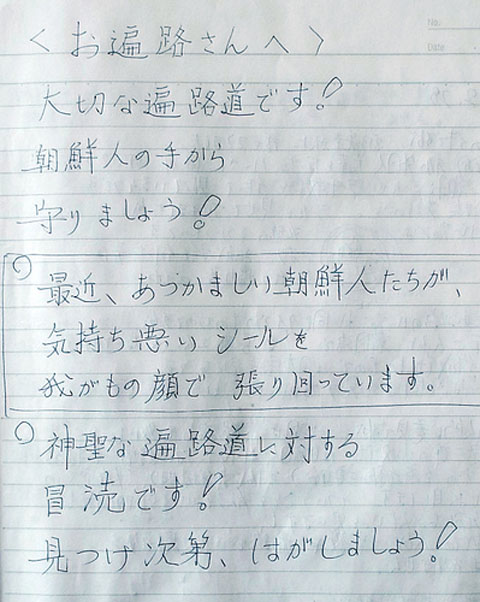 〈お遍路さんへ〉
大切な遍路道です!
朝鮮人の手から
守りましょう!
○ 最近、あつかましい朝鮮人たちが、
気持ち悪いシールを
我がもの顔で 張り回っています。
○ 神聖な遍路道に対する
冒涜です!
見つけ次第、はがしましょう!
No.
Date